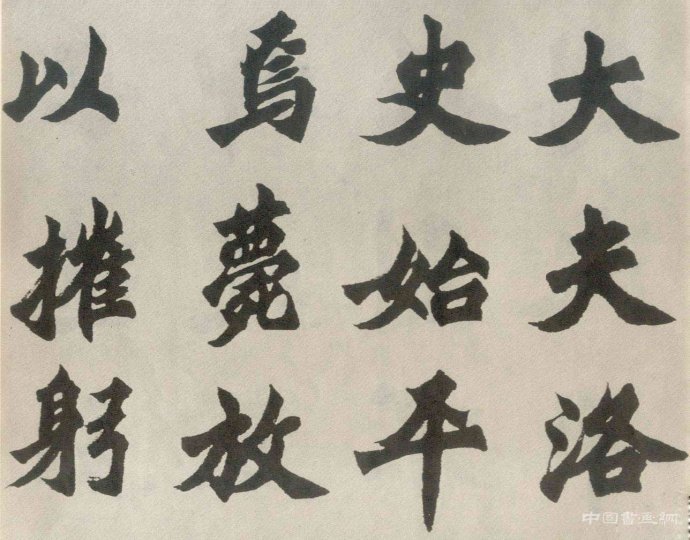 大夫洛
史始平
焉薨放
以摧躬
中国書画網